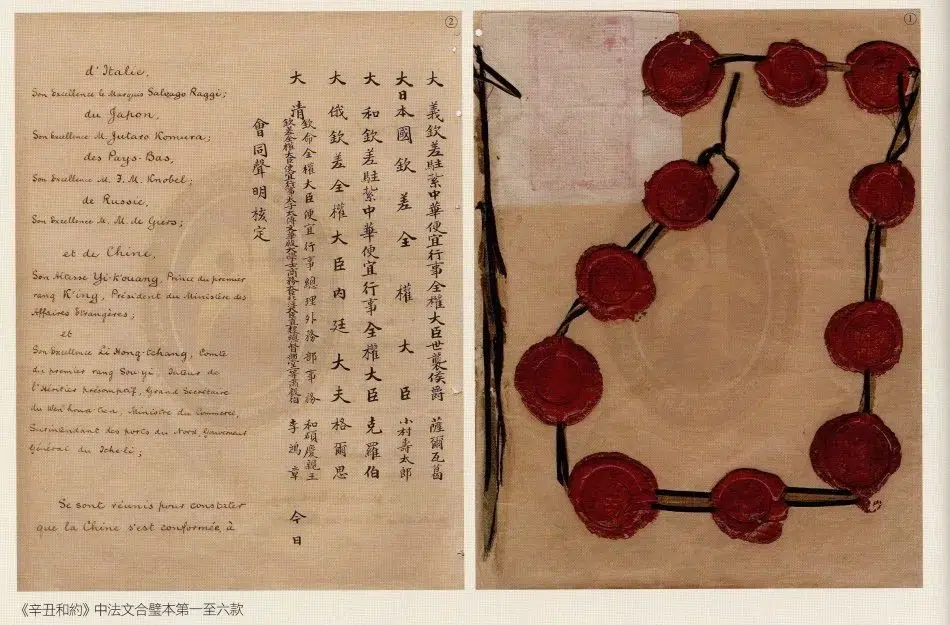 ②
d'Italie,
Son Excellence le Marquis Salvago Raggi;
du Japon,
Son Excellence M. Jutaro Komura;
des Pays-Bas,
Son Excellence M. F. M. Knobel;
de Russie,
Son Excellence M. M. de Giers;
et de Chine,
Son Altesse Yi-K'ouang, Prince du premier
rang K'ing, Président du Ministère des
Affaires Etrangères;
et
Son Excellence Li Hong-tchang, Comte
du premier rang Sou-yi, Tuteur de
l'Héritier présomptif, Grand Secrétaire
du Wen-houa tien, Ministre du Commerce,
Surintendant des ports du Nord, Gouverneur
Général du Tcheli;
Se sont réunis pour constater
que la Chine s'est conformée, à
大義欽差駐紮中華便宜行事全權大臣世襲侯爵薩爾瓦葛
大日本國欽差全權大臣小村壽太郎
大和欽差駐紮中華便宜行事全權大臣克羅伯
大俄欽差全權大臣內廷大夫格爾思
大清
欽命全權大臣便宜行事總理外務部事務和碩慶親王
欽差全權大臣便宜行事太子太傅文華殿大學士商務大臣北洋大臣直隸總督部堂一等肅毅伯李鴻章
今日
會同聲明核定
①
《辛丑和約》中法文合璧本第一至六款